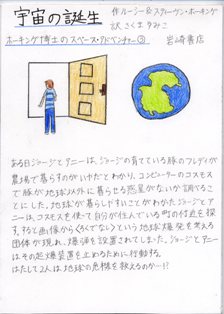 宇宙の誕生
作 ルーシー&スティーヴン・ホーキング
訳 さくまゆみこ
ホーキング博士のスペース・アドベンチャー③
岩崎書店
ある日ジョージとアニーは、ジョージの育てている豚のフレディが
農場で暮らすのがいやだとわかり、コンピューターのコスモス
で豚が地球以外に暮らせる惑星がないか調べるこ
とにした。地球が暮らしやすいことがわかったジョージとア
ニーは、コスモスを使って自分が住んでいる町の付近を探
す。すると画像からくろくでない)という地球爆発を考える
団体が現れ、爆弾を設置されてしまった。ジョージとアニー
はその起爆装置を止めるために行動する。
はたして2人は地球の危機を救えるのか…!?